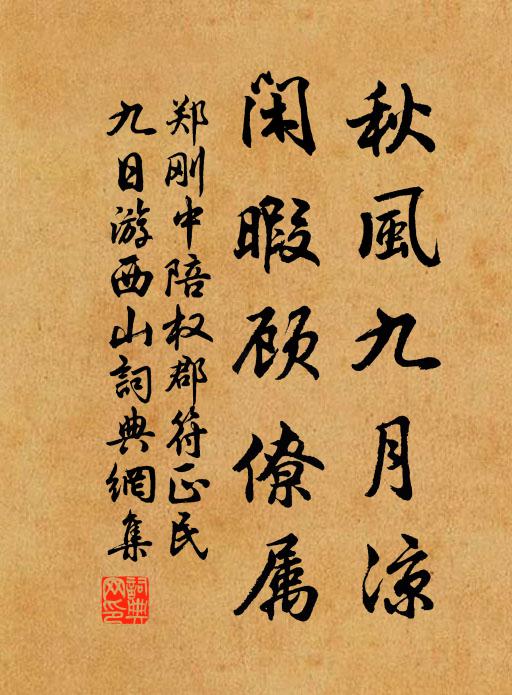 秋風九月涼
閑暇顾僚属
郑刚中陪权郡符正民
九日游西山詞典網集
詞典網印